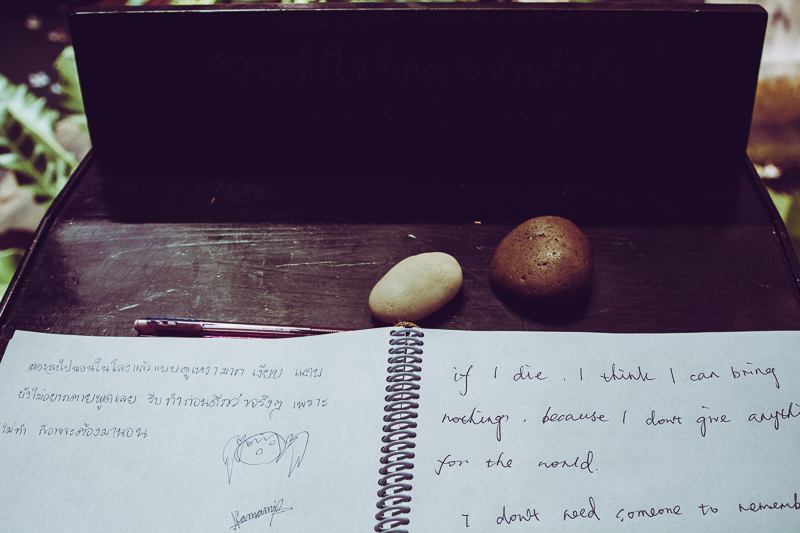 ความตั้งใจที่คุณจะทำหลังวัน
ตอนลงไปนอนในโลงแล้วแบบดูเหงามาก เงียบ แคบ
ยังไม่อยากตายพูดเลย รีบทำก่อนดีกว่าจริงๆ เพราะ
ไม่ทำ ก็อาจจะต้องมานอน
if I die . I think I can bring
nothing . because I don't give anythi
for the world.
I don't need someone to rememb